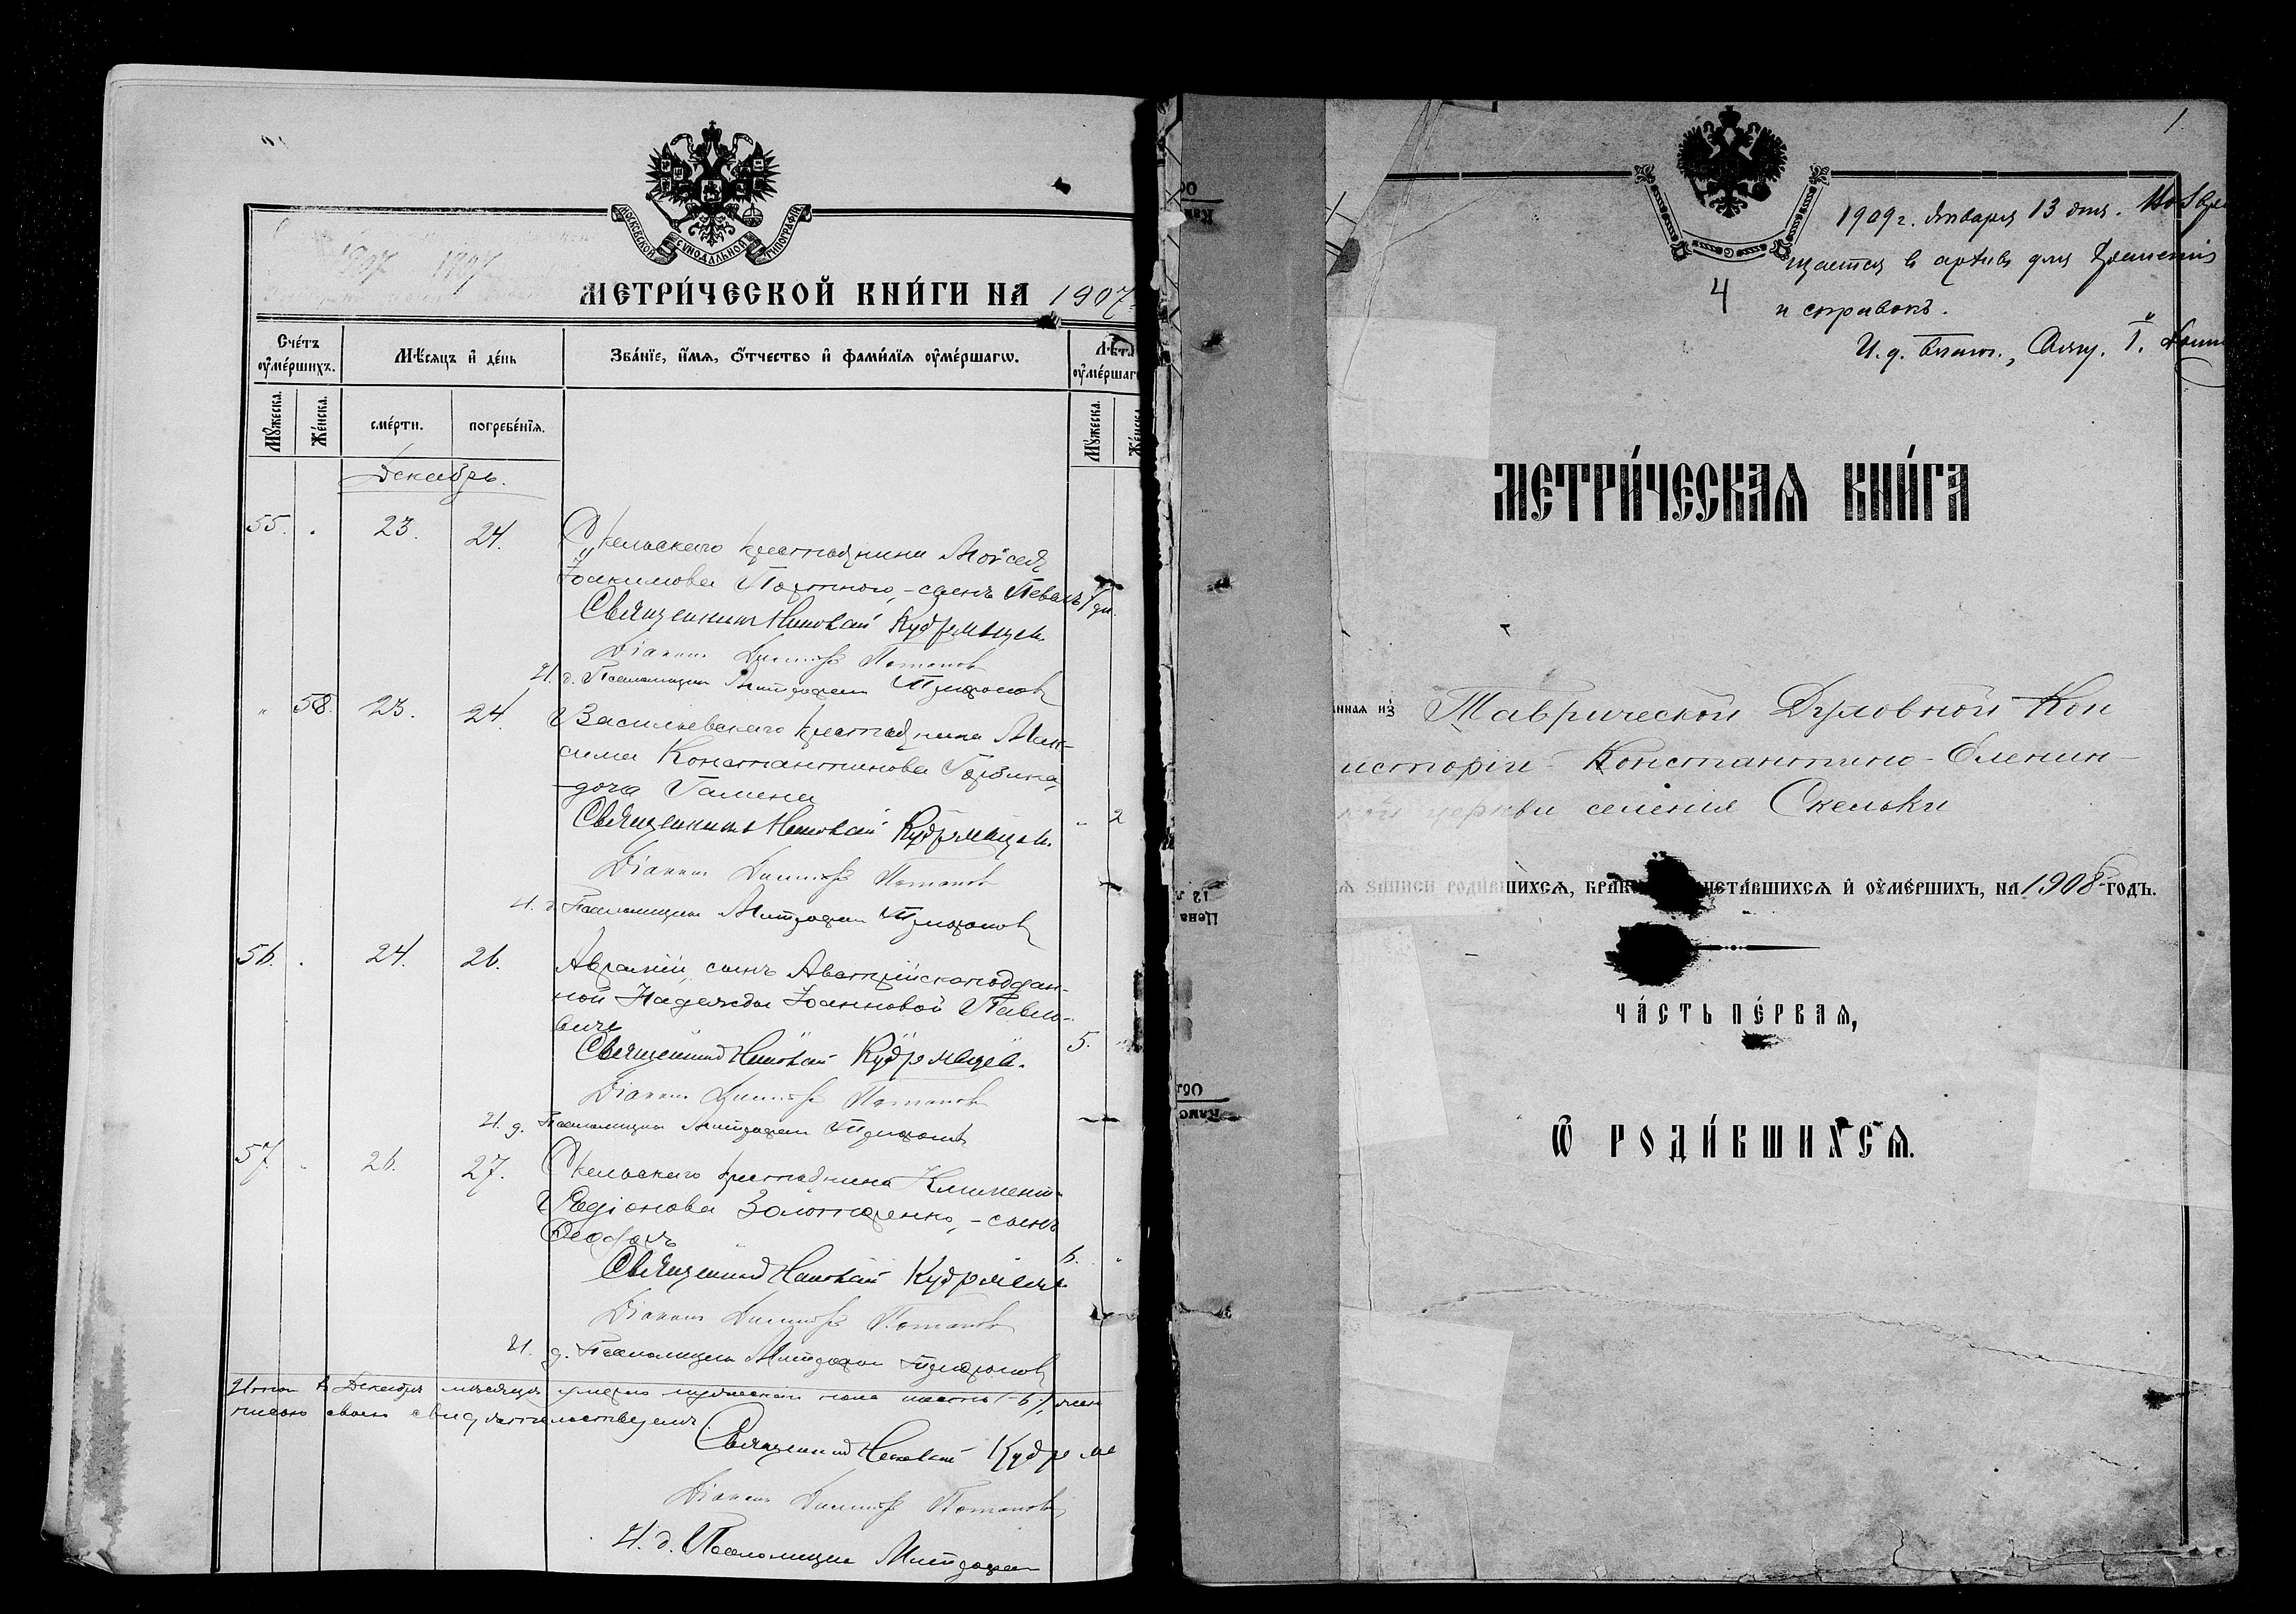 МОСКОВСКОЙ СѴНОДАЛЬНОЙ ТИПОГРАФІИ
1907 1907
МЕТРИ́ЧЕСКОЙ КНИ́ГИ НА 1907
Сче́тъ ᲂу҆ме́ршихъ.
Мѣ́сяцъ и҆ де́нь
Зва́нїе, и҆́мѧ, ѻ҆́тчество и҆ фами́лїѧ ᲂу҆ме́ршагѡ.
Лѣ́та ᲂу҆ме́ршаг
Мꙋ́жеска.
Же́нска.
сме́рти.
погребе́нїѧ.
Мꙋ́жеска.
Же́нска
Декабрь.
55. 23. 24. Скельскаго крестьянина Моѵсея
Іоакимова Портного, - сынъ Павелъ 7 дн.
Священникъ Николай Кудрявцев
Діаконъ Димитрій Потапов
И. д. Псаломщика Митрофан Трифонов
" 58. 23. 24. Васильевскаго крестьянина Мак-
сима Константинова
дочь Галина
Священникъ Николай Кудрявцев " 2
Діаконъ Димитрій Потапов
И. д. Псаломщика Митрофан Трифонов
56. 24. 26. Австрійскоподдан-
ной Надежды Іоанновой Павло-
вичъ
Священник Николай Кудрявцев. 5.
Діаконъ Димитрій Потапов
И. д. Псаломщика Митрофан Трифонов
57. 26. 27. Скельскаго крестьянина Климента
Родіонова Золотаренко, - сынъ
Ѳеодоръ
6.
Священник Николай Кудрявцев
Діаконъ Димитрій Потапов
И. д. Псаломщика Митрофан Трифонов
Итого въ Декабрѣ мѣсяцѣ умерло мужескаго пола шесть /-6/,
писью своею свидѣтельствуемъ
Священник Николай Кудрявцев
Діаконъ Димитрій Потапов
И. д. Псаломщика Митрофан
1
1909 г. Января 13 дня. Возвра
щается в архивъ для храненія
и справокъ.
И. д. благоч., Свящ. І.
4
МЕТРИ́ЧЕСКАѦ КНИ́ГА
нная из̾ Таврической Духовной Кон
систоріи Константино-Еленин-
ской церкви селенія Скельки
ѧ за́писи роди́вшихсѧ, бра́ко чета́вшихсѧ и҆ ᲂу҆ме́ршихъ, на 1908 годъ.
ЧА́СТЬ ПЕ́РВАѦ,
Ѡ҆ РОДИ́ВШИХСѦ.
Цена 12